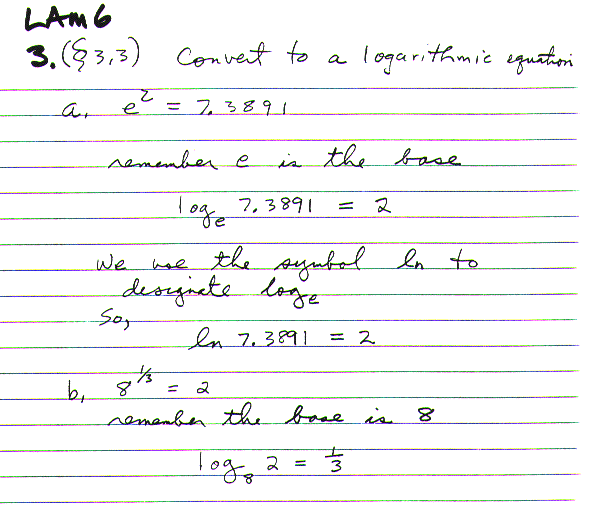 LAM 6
3. (§ 3,3) Convert to a logarithmic equation
a, e² = 7.3891
remember e is the base
logₑ 7.3891 = 2
We use the symbol ln to
designate logₑ
So,
ln 7.3891 = 2
b, 8^1/3 = 2
remember the base is 8
log₈ 2 = 1/3